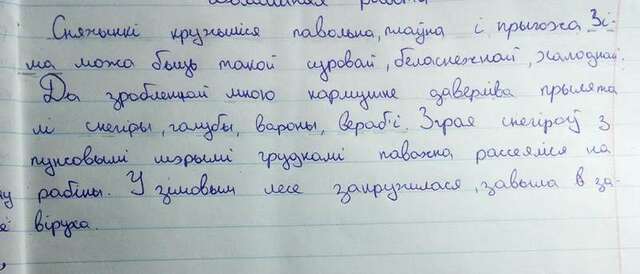 работа
Сняжынкі кружыліся павольна, плаўна і прыгожа. Зі-
ма можа быць такой суровай, беласнежнай, халоднай.
Да зробленнай мною кармушке даверліва прылята
лі снегіры, галубы, вароны, вераб'і. Зграя снегіроў з
пунсовымі шэрымі грудкамі паважна расселіся на
рабіны. У зімовым лесе закружылася, завыла в за-
віруха.